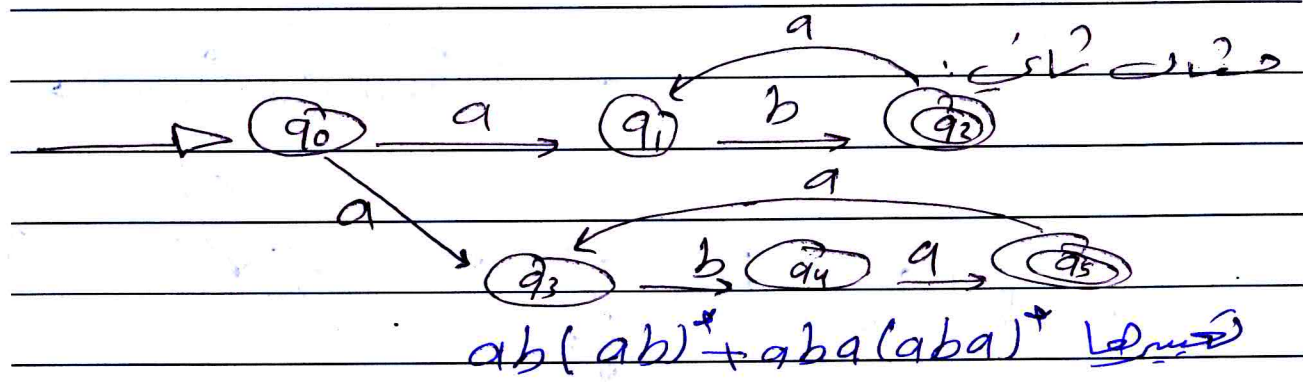 مثال ثاني:
a
q0 a q1 b q2
a
a
q3 b q4 a q5
ab(ab)*+aba(aba)* تعبيرها